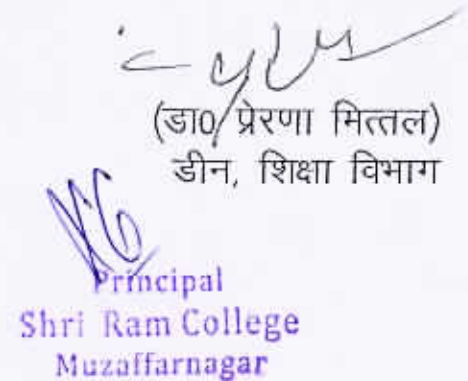 (डा0 प्रेरणा मित्तल)
डीन, शिक्षा विभाग
Principal
Shri Ram College
Muzaffarnagar